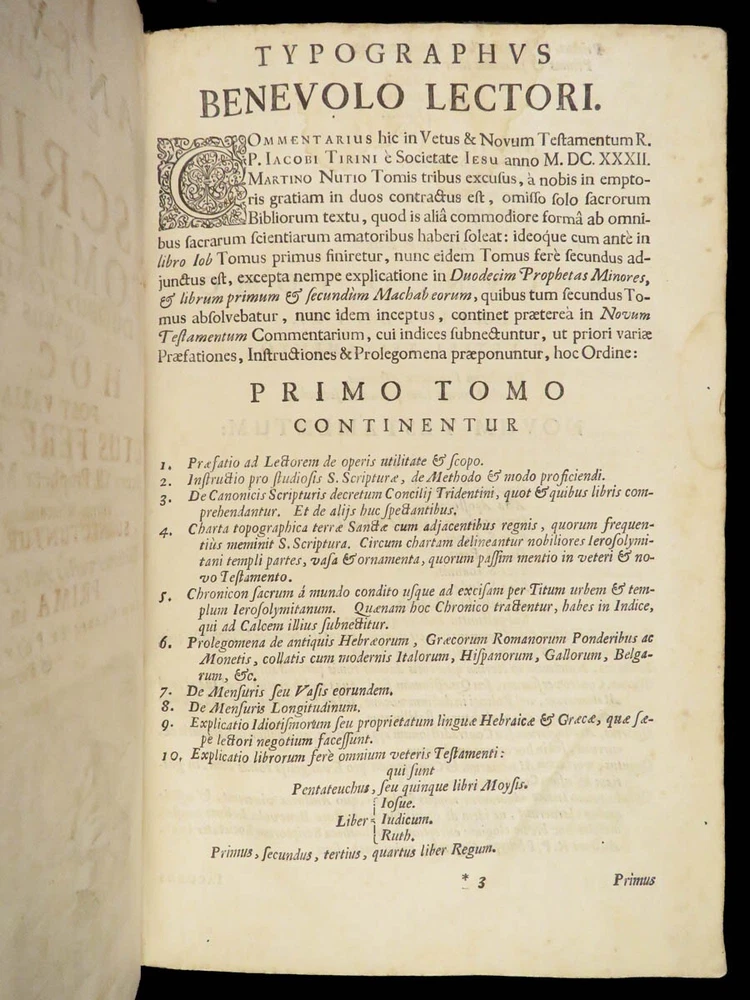 TYPOGRAPHVS
BENEVOLO LECTORI.
COMMENTARIUS hic in Vetus & Novum Teſtamentum R.
P. IACOBI TIRINI è Societate IESU anno M. DC. XXXII.
MARTINO NUTIO Tomis tribus excuſus, à nobis in empto-
ris gratiam in duos contractus eſt, omiſſo ſolo ſacrorum
Bibliorum textu, quod is aliâ commodiore formâ ab omni-
bus ſacrarum ſcientiarum amatoribus haberi ſoleat: ideoque cum antè in
libro Iob Tomus primus finiretur, nunc eidem Tomus ferè ſecundus ad-
junctus eſt, excepta nempe explicatione in Duodecim Prophetas Minores,
& librum primum & ſecundùm Machabeorum, quibus tum ſecundus To-
mus abſolvebatur, nunc idem inceptus, continet præterea in Novum
Teſtamentum Commentarium, cui indices ſubnectuntur, ut priori variæ
Præfationes, Inſtructiones & Prolegomena præponuntur, hoc Ordine:
PRIMO TOMO
CONTINENTUR
1. Præfatio ad Lectorem de operis utilitate & ſcopo.
2. Inſtructio pro ſtudioſis S. Scripturæ, de Methodo & modo proficiendi.
3. De Canonicis Scripturis decretum Concilij Tridentini, quot & quibus libris com-
prehendantur. Et de alijs huc ſpectantibus.
4. Charta topographica terræ Sanctæ cum adjacentibus regnis, quorum frequen-
tiùs meminit S. Scriptura. Circum chartam delineantur nobiliores Ieroſolymi-
tani templi partes, vaſa & ornamenta, quorum paſſim mentio in veteri & no-
vo Teſtamento.
5. Chronicon ſacrum á mundo condito uſque ad exciſam per Titum urbem & tem-
plum Ieroſolymitanum. Quænam hoc Chronico tractentur, habes in Indice,
qui ad Calcem illius ſubnectitur.
6. Prolegomena de antiquis Hebræorum, Græcorum Romanorum Ponderibus ac
Monetis, collatis cum modernis Italorum, Hiſpanorum, Gallorum, Belga-
rum, &c.
7. De Menſuris ſeu Vaſis eorundem.
8. De Menſuris Longitudinum.
9. Explicatio Idiotiſmorum ſeu proprietatum linguæ Hebraicæ & Græcæ, quæ ſæ-
pè lectori negotium faceſſunt.
10. Explicatio librorum ferè omnium veteris Teſtamenti:
qui ſunt
Pentateuchus, ſeu quinque libri Moyſis.
Ioſue.
Liber Iudicum.
Ruth.
Primus, ſecundus, tertius, quartus liber Regum.
* 3 Primus